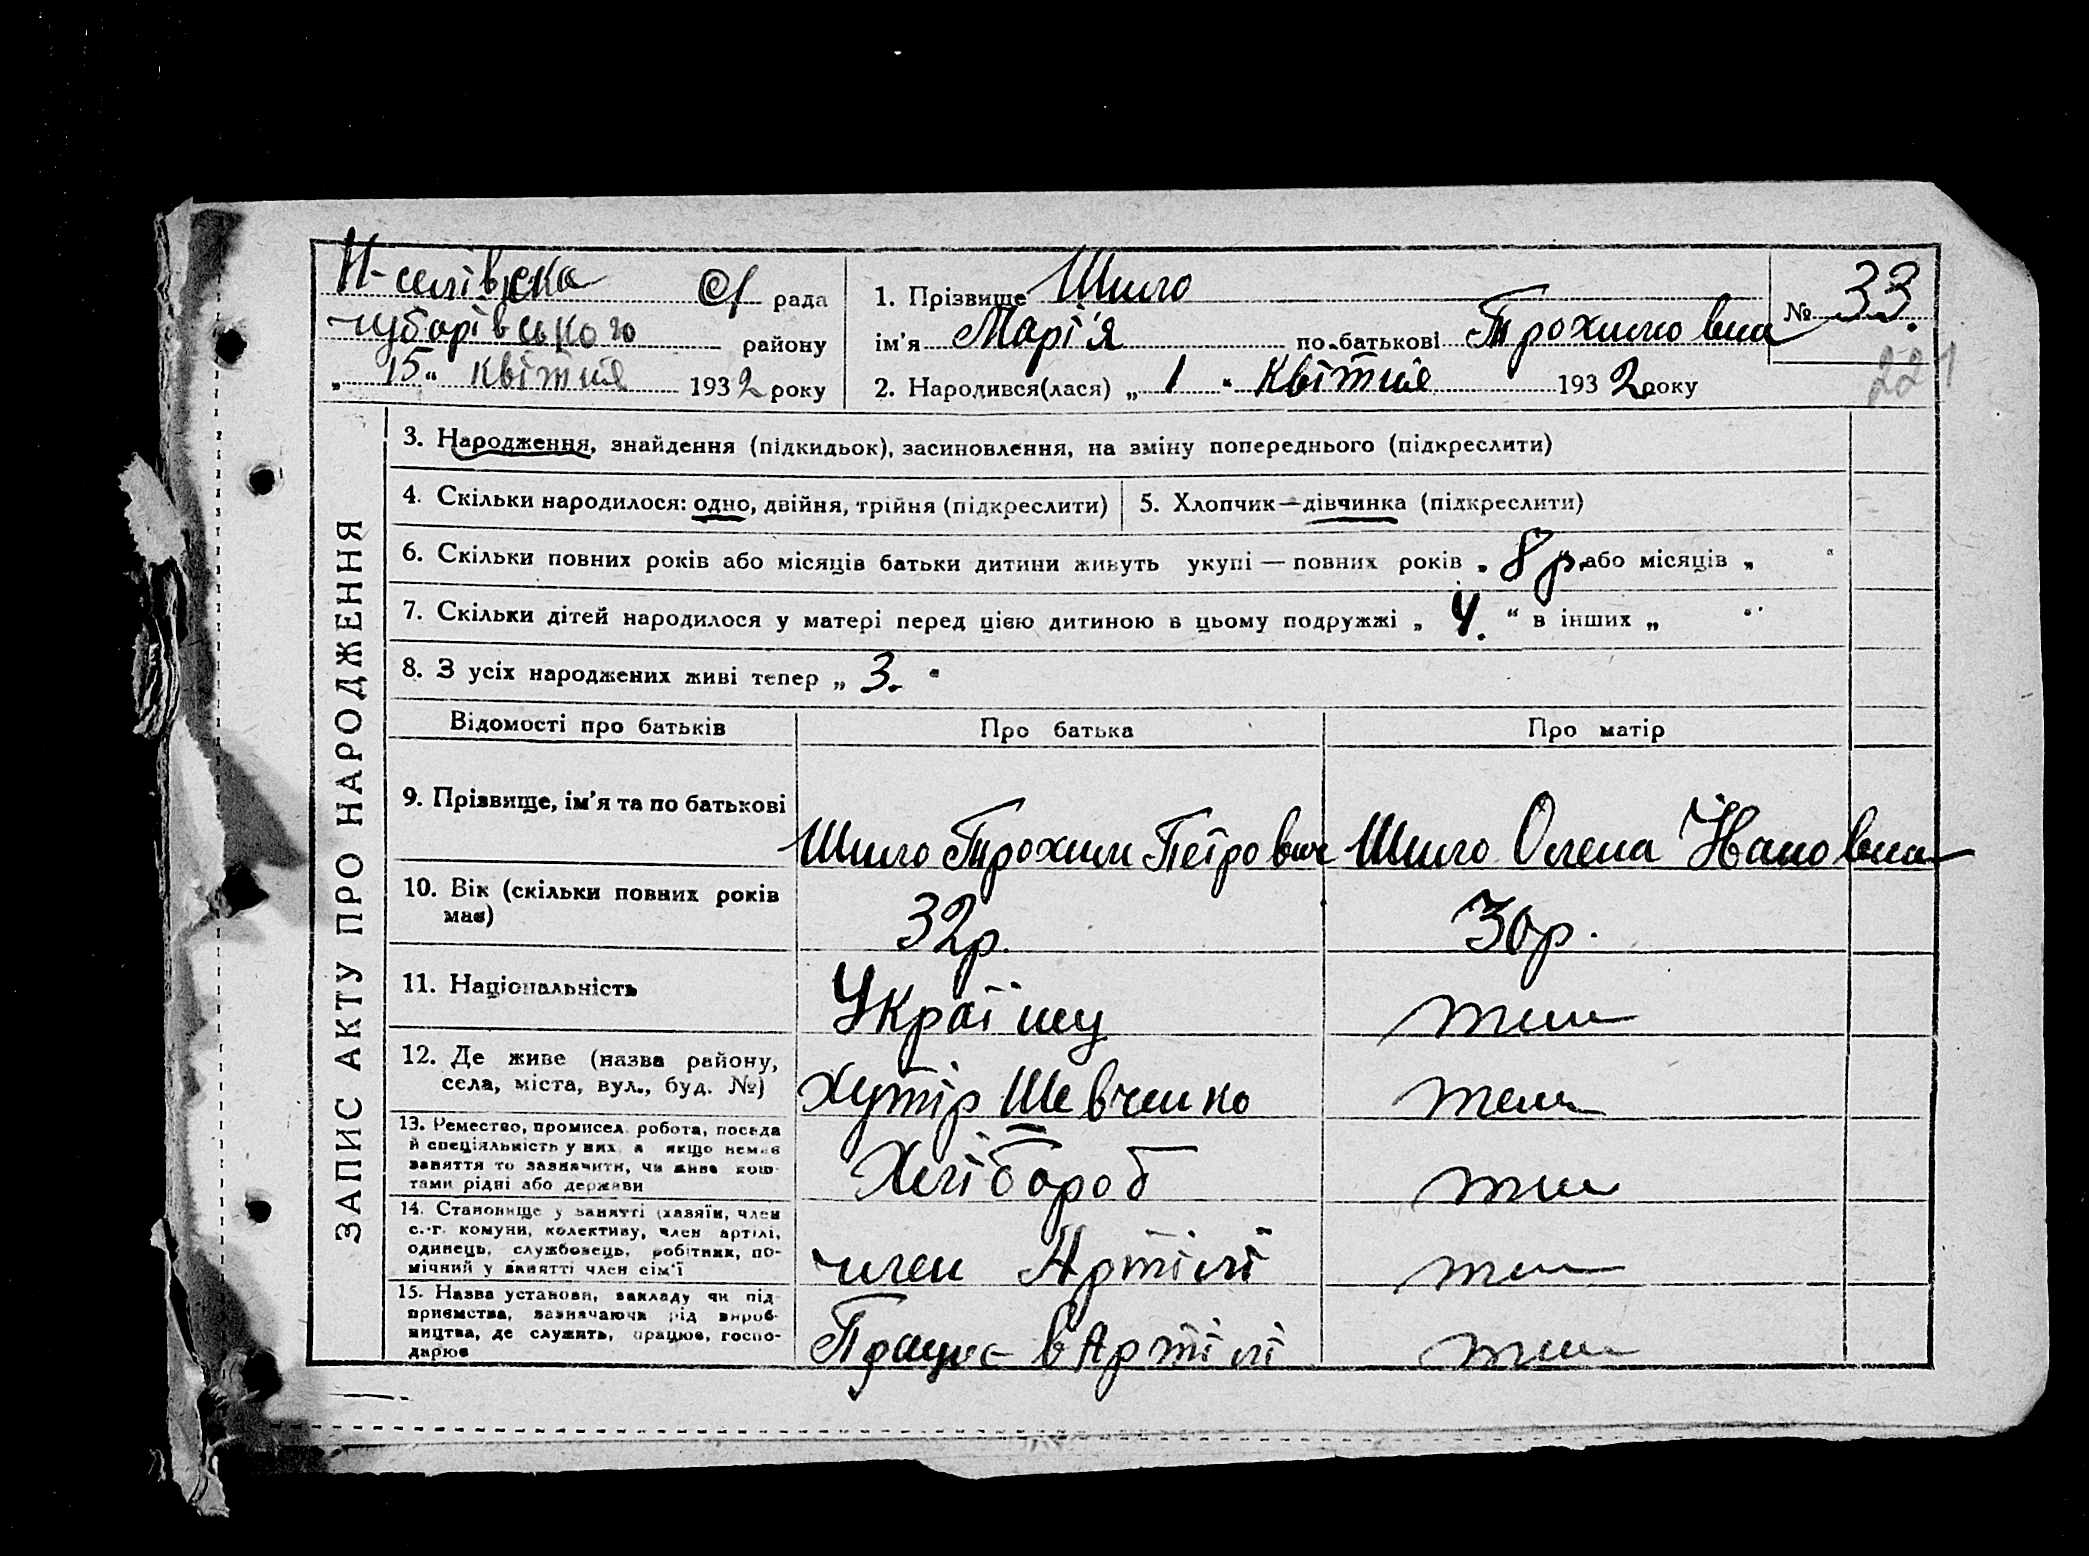 Н-селівска с/ рада
чубарівського району
„ 15 “ квітня 1932 року
1. Прізвище Шило
ім'я Марі'я по батькові Трохимовна
№ 33.
221
2. Народився(лася) „ 1 “ квітня 1932 року
ЗАПИС АКТУ ПРО НАРОДЖЕННЯ
3. Народження, знайдення (підкидьок), засиновлення, на зміну попереднього (підкреслити)
4. Скільки народилося: одно, двійня, трійня (підкреслити)
5. Хлопчик—дівчинка (підкреслити)
6. Скільки повних років або місяців батьки дитини живуть укупі — повних років „ 8 р. або місяців „ “
7. Скільки дітей народилося у матері перед цією дитиною в цьому подружжі „ 4. “ в інших „ “
8. З усіх народжених живі тепер „ 3. “
Відомості про батьків
Про батька
Про матір
9. Прізвище, ім'я та по батькові
Шило Трохим Петрович
Шило Олена Івановна
10. Вік (скільки повних років
має)
32р.
30р.
11. Національність
Україну
тип
12. Де живе (назва району,
села, міста, вул., буд. №)
Хутір Шевченко
13. Ремество, промисел. робота, посада
й спеціяльність у них, а якщо немає
заняття то зазначити, чи живе кош-
тами рідні або держави
Хлібороб
14. Становище у занятті (хазяїн, член
с.-г. комуни, колективу, член артілі,
одинець, службовець, робітник, по-
мічний у занятті член сім'ї
член Артілі
15. Назва установи, закладу чи під-
приємства, зазначаючи рід вироб-
ництва, де служить, працює, госпо-
дарює
Працює в Артілі